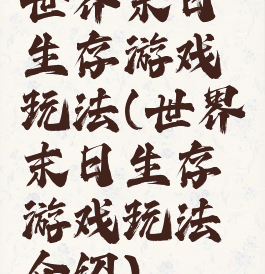 世界末日
生存游戏
玩法(世界
末日生存
游戏玩法
介绍)